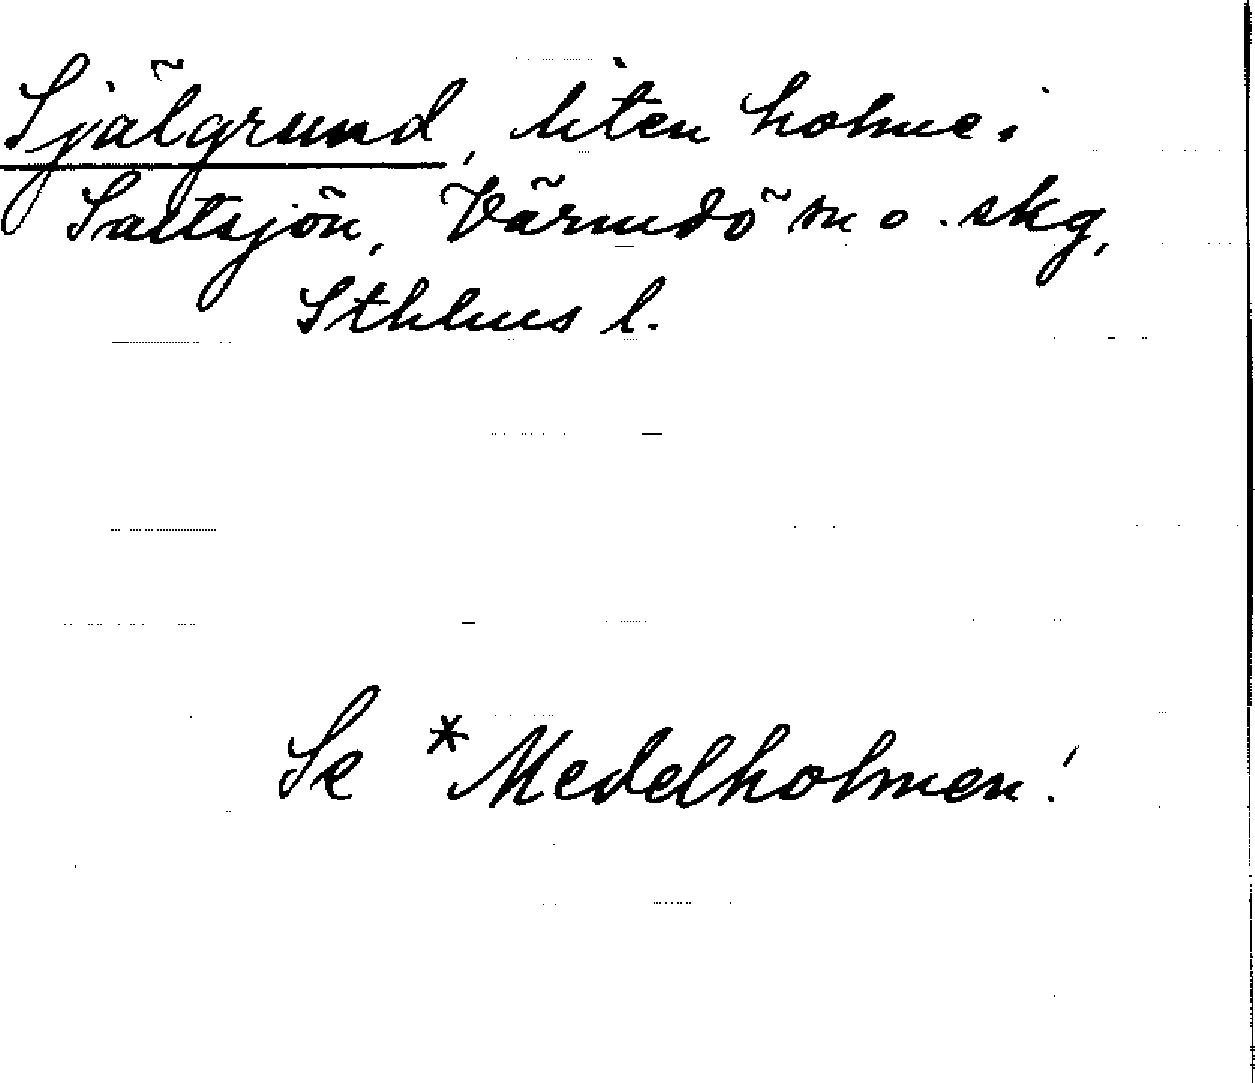 Själgrund, liten holme i
Saltsjön, Värmdö sn o. skg,
Sthlms l.
Se *Medelholmen!